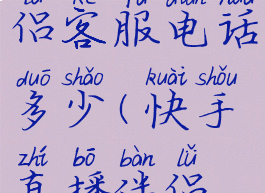 侣客服电话
duō shǎo kuài shǒu
多少(快手
zhí bō bàn lǚ
直播伴侣